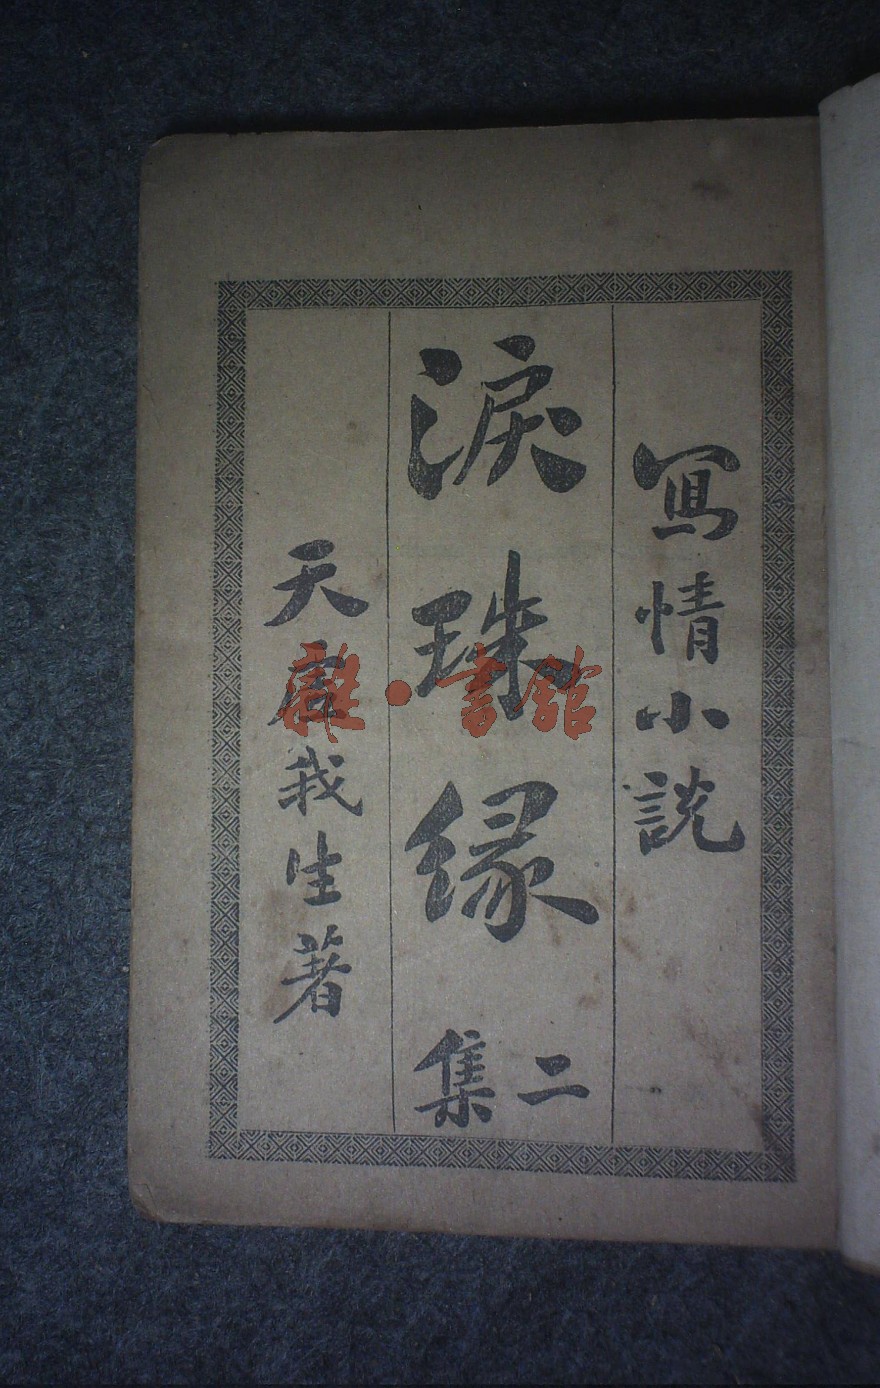 寫情小說
淚珠緣
二集
天虛我生著
雜·書館